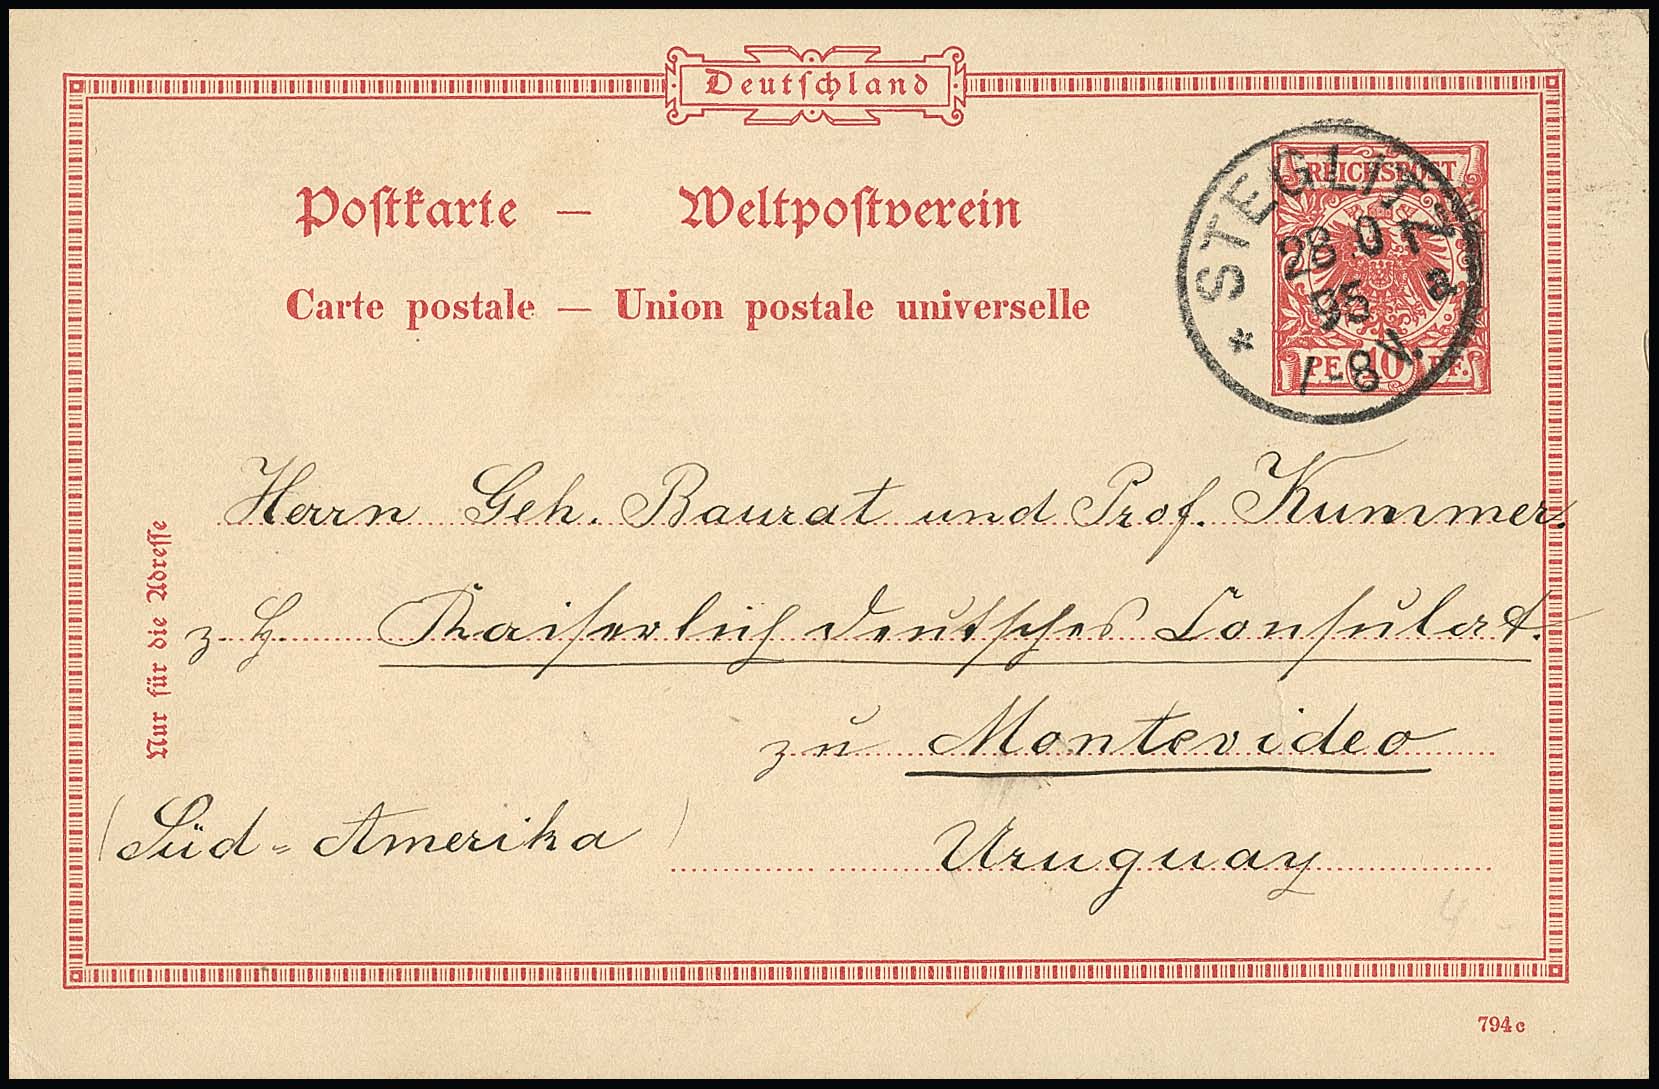 Deutschland
Postkarte — Weltpostverein
Carte postale — Union postale universelle
REICHSPOST
PF. 10 PF.
STEGLITZ
28
95
a
-8V.
*
Nur für die Adresse
Herrn Geh. Baurat und Prof. Kummer.
z. H. Kaiserlich deutsches Consulat.
zu Montevideo
(Süd=Amerika)
Uruguay
4
794c